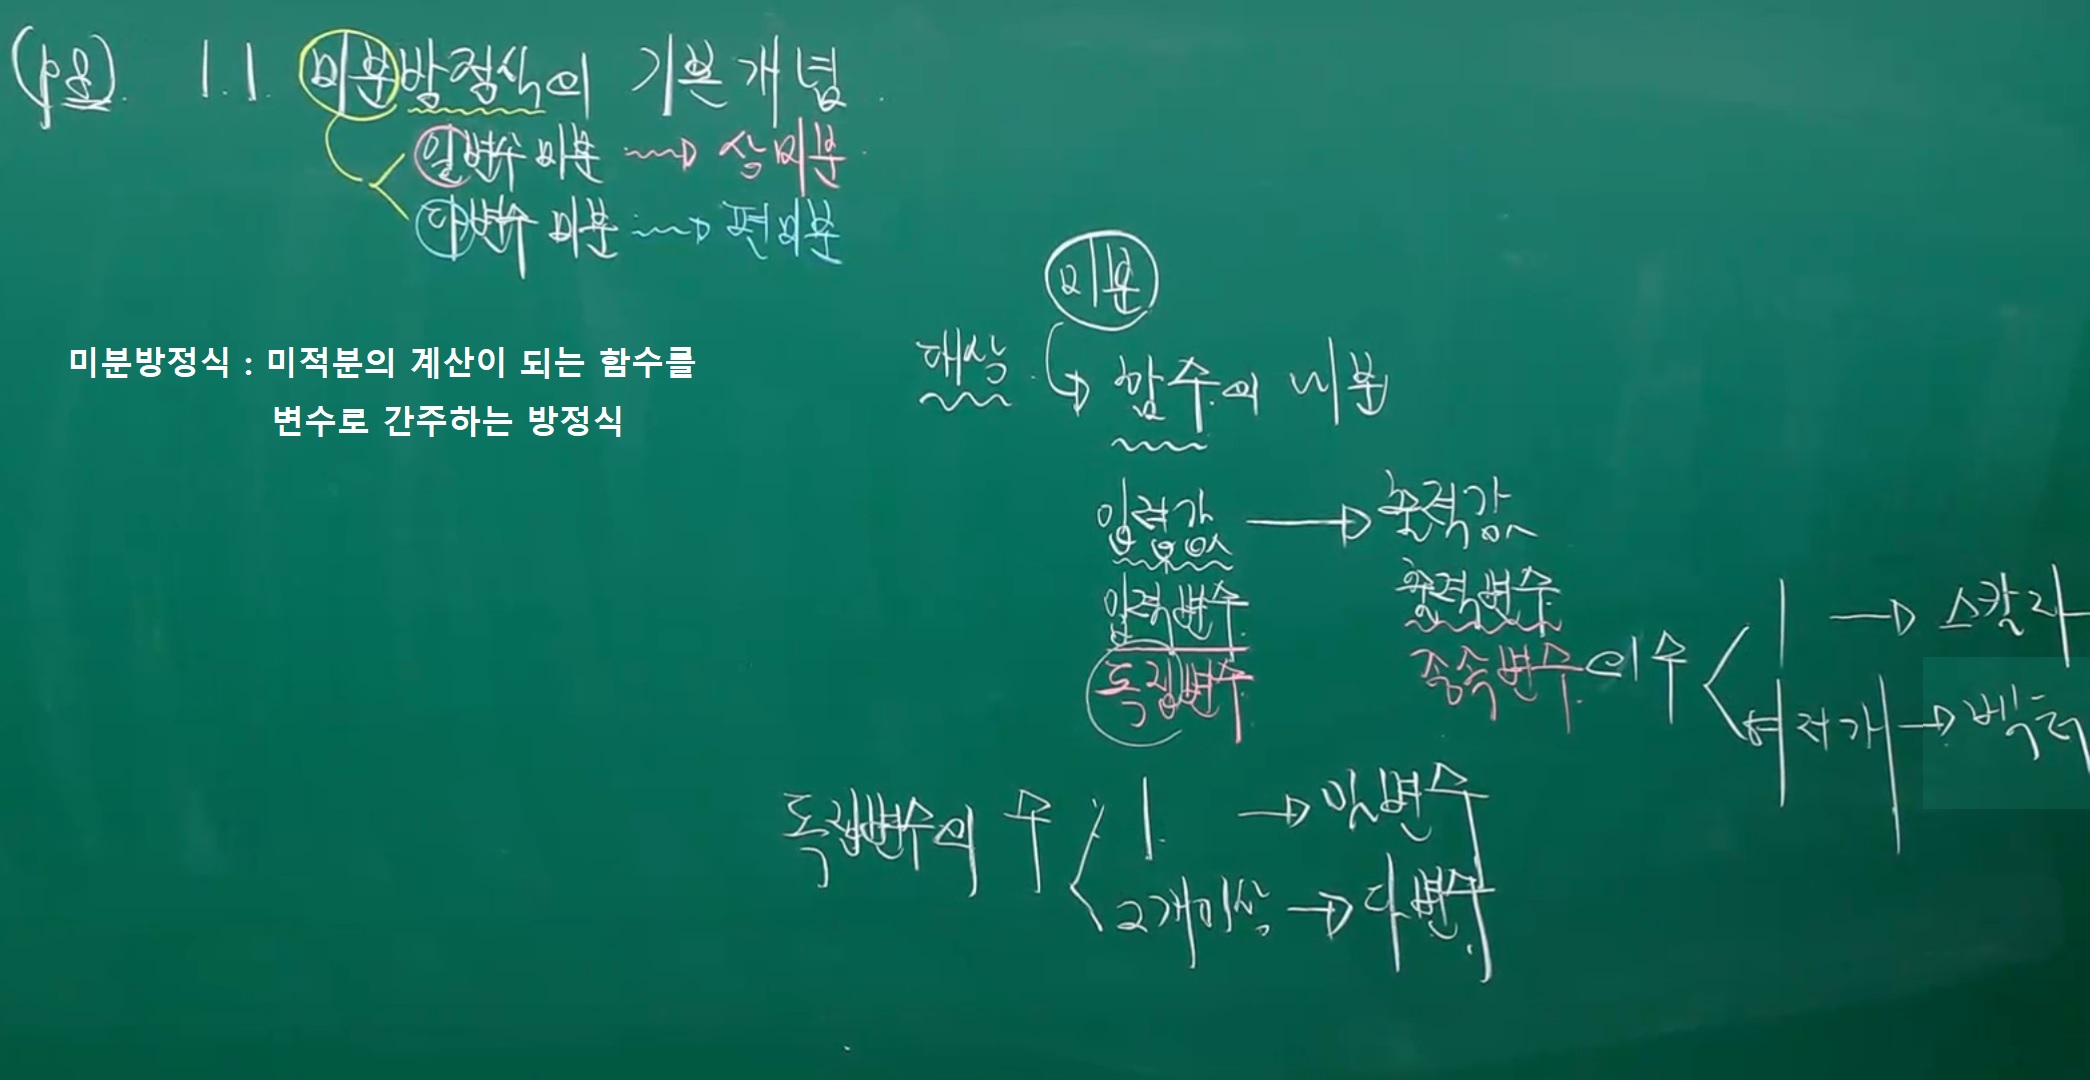 (p8). 1.1. 미분방정식의 기본개념.
일변수 미분 → 상미분.
다변수 미분 → 편미분
미분방정식 : 미적분의 계산이 되는 함수를
변수로 간주하는 방정식
미분
대상. → 함수의 미분
입력값 → 출력값
입력변수 출력변수
독립변수 종속변수의 수
1 → 스칼라
여러개 → 벡터
독립변수의 수
1. → 일변수
2개이상 → 다변수.